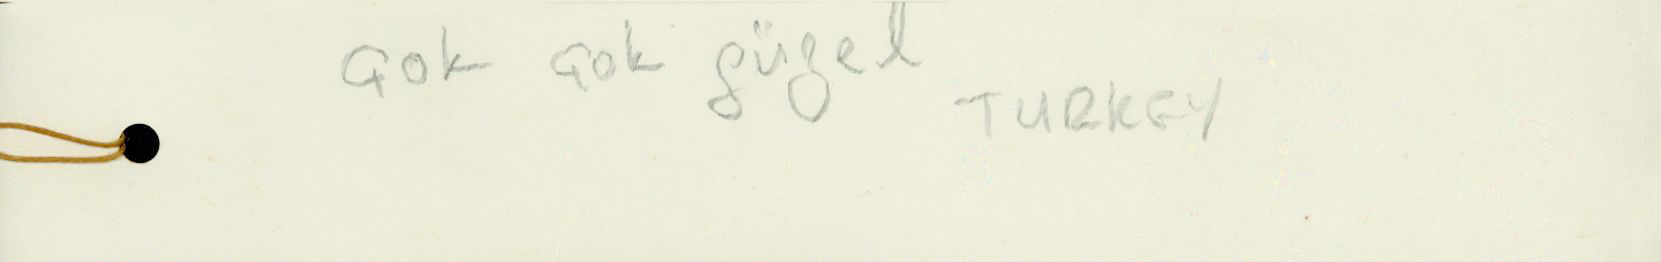 Çok çok güzel
TURKEY